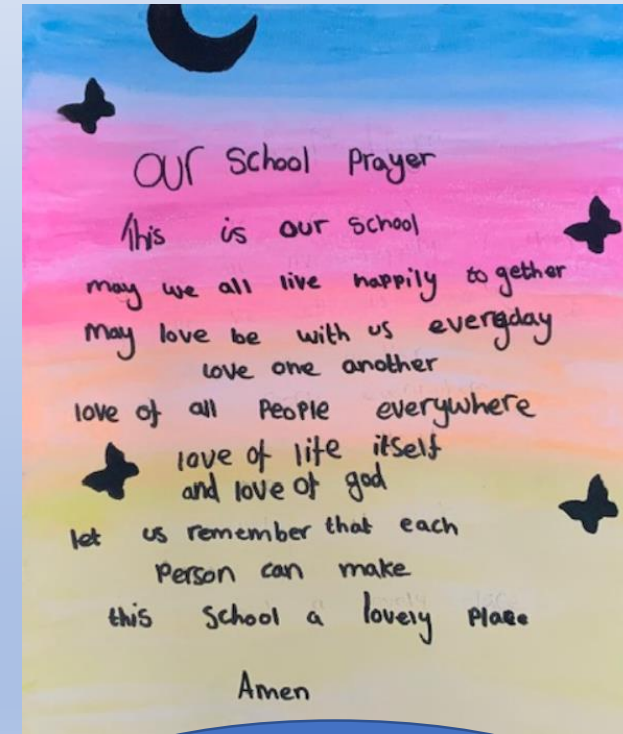 Our School Prayer
This is our school
may we all live happily to gether
may love be with us everyday
love one another
love of all People everywhere
love of life itself
and love of god
let us remember that each
Person can make
this School a lovely Place
Amen